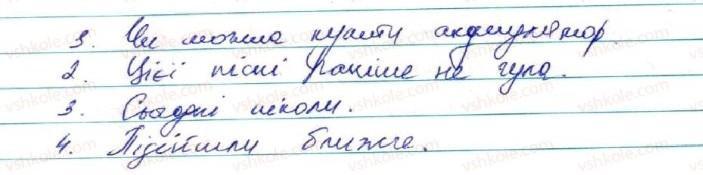 3. Чи можна купити акумулятор
2. Цієї пісні раніше не чула.
3. Сьогодні ніколи.
4. Підійшли ближче.